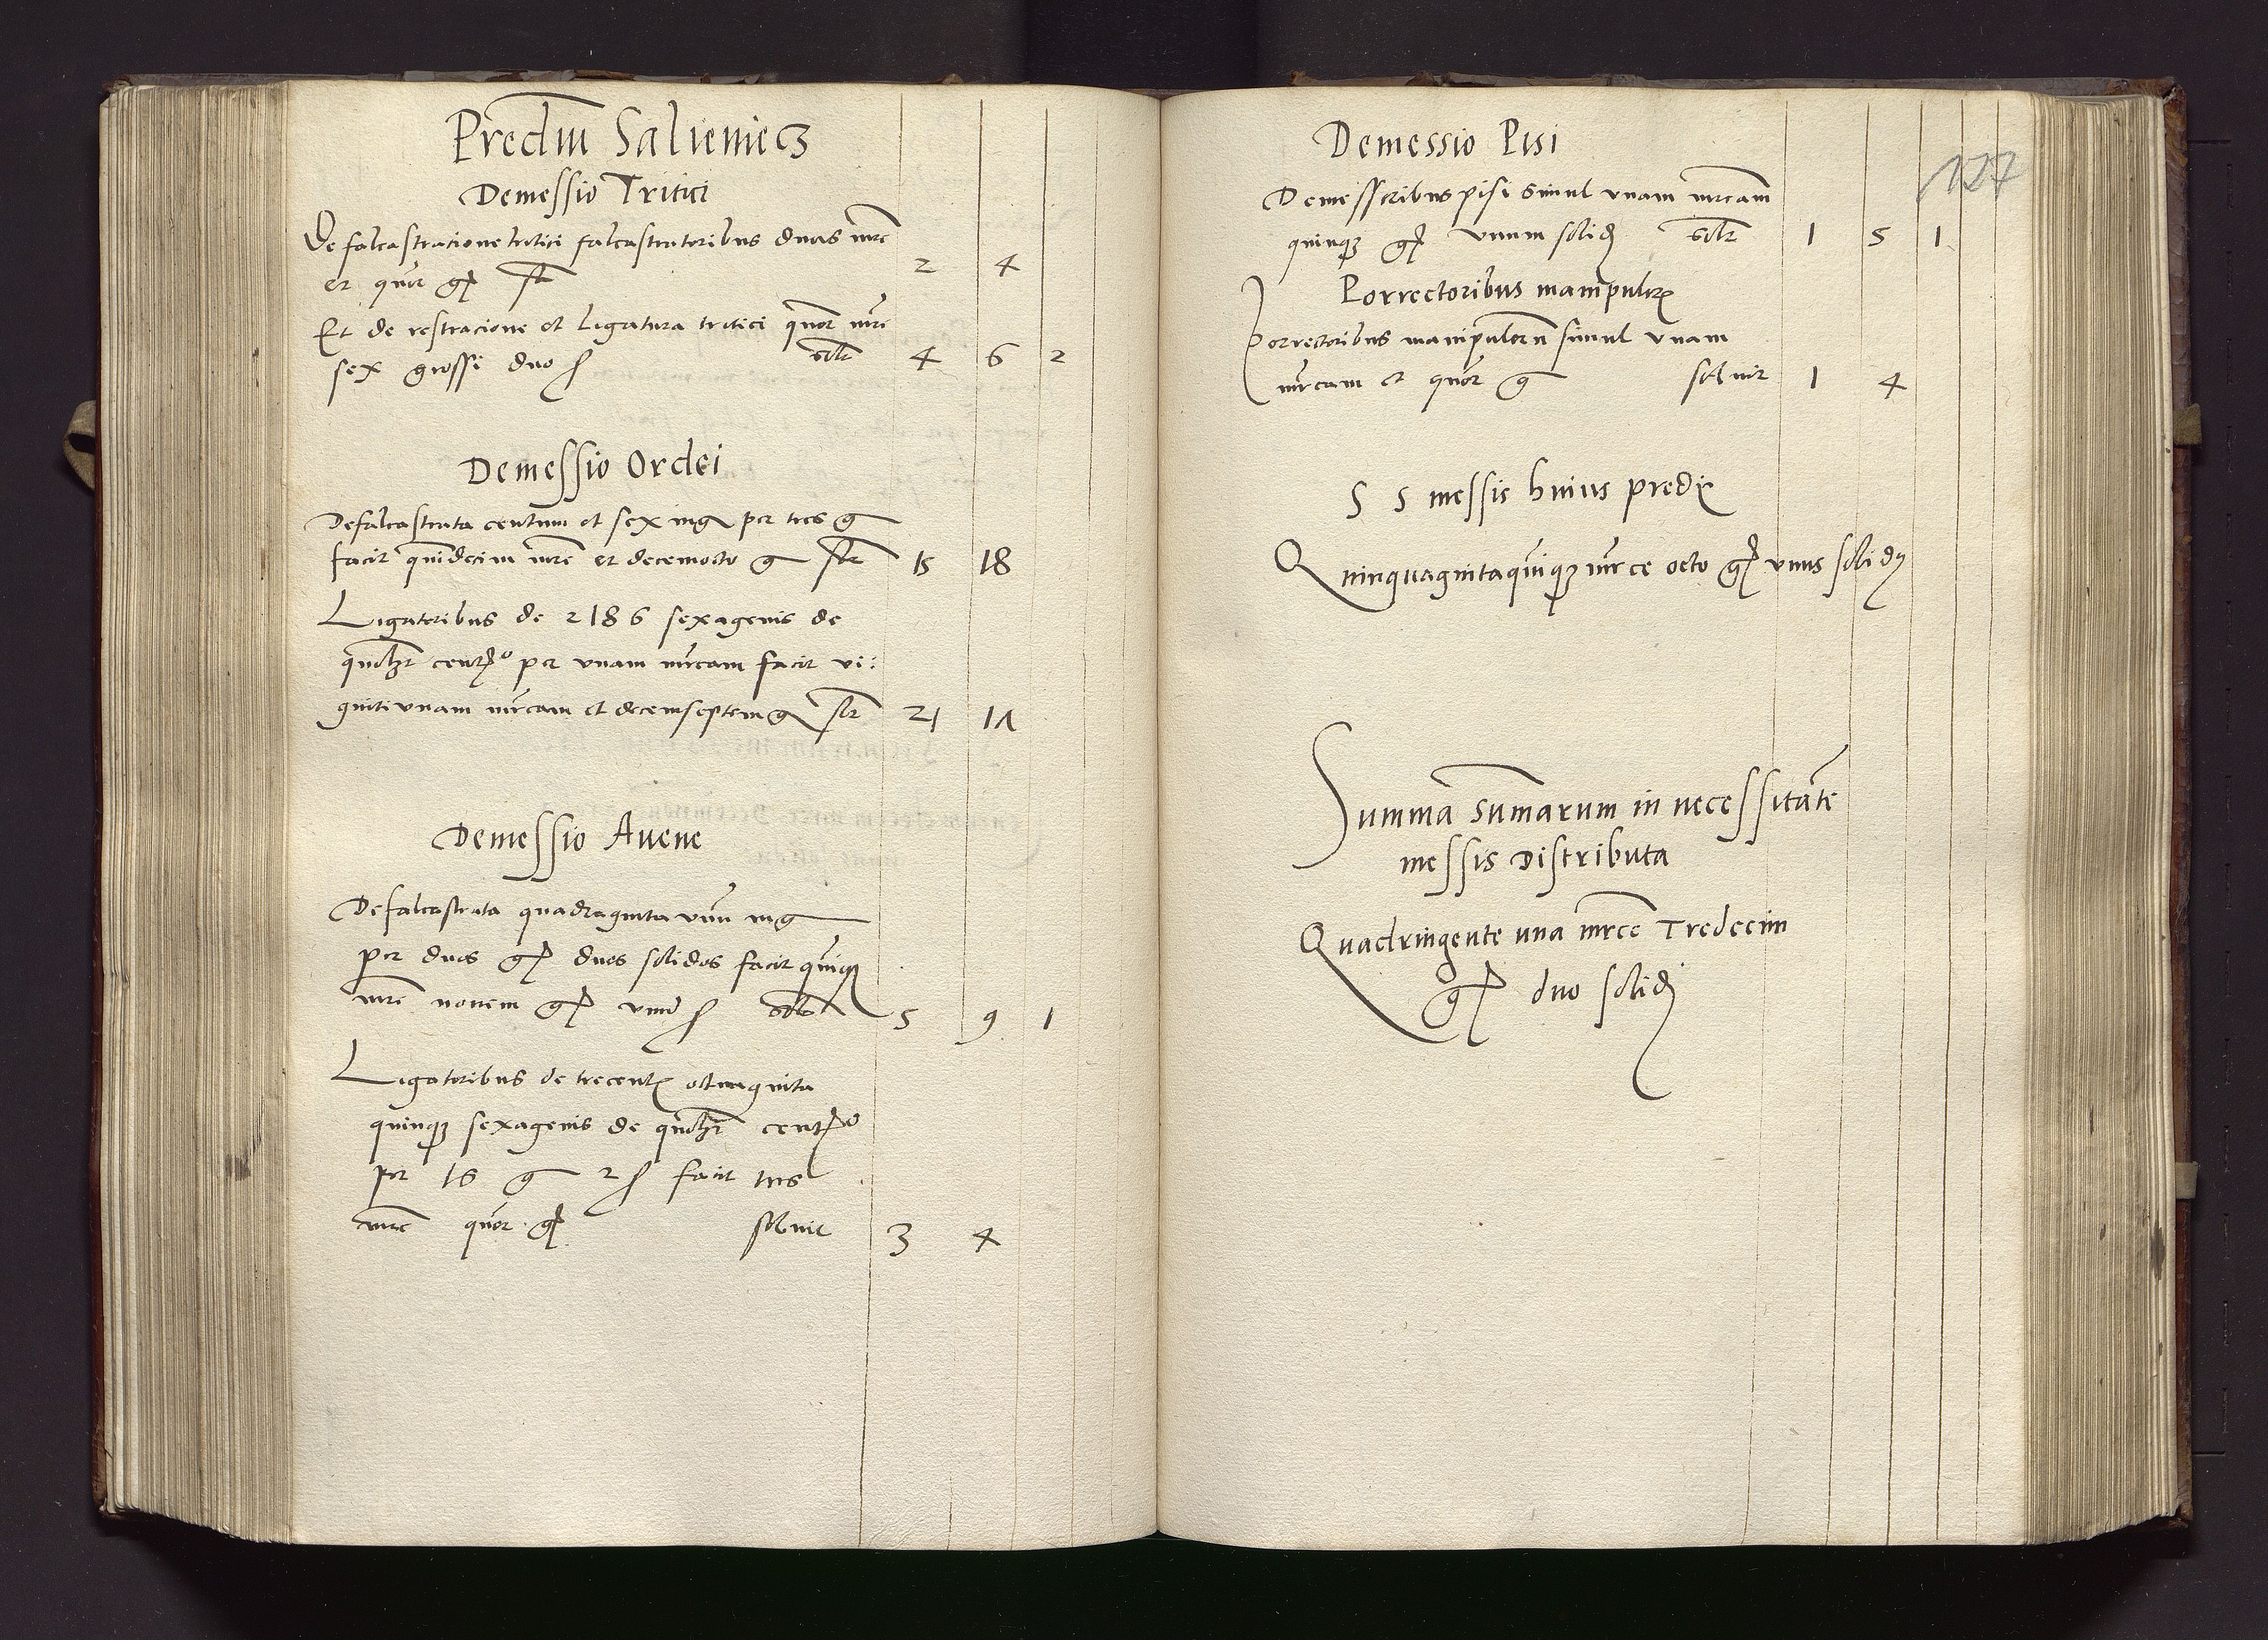 Prediũ Saliemiecz
Demessio Tritici
De falcastracione tritici falcastratoribus duas mrc
et quor gr slt 2 4
Et de restracione et ligatura tritici quor mrc
sex grossi duo s solt 4 6 2
Demessio Ordei
Defalcastrata centum et sex iug per tres g
facit quindecim mrc et decemocto g slt 15 18
Ligatoribus de 2186 sexagenis de
quolzt centro per unam mrcam facit vi:
gintiunam mrcam et decemseptem g slt 21 17
Demessio Avene
Defalcastrata quadragintaunũ iug
per duos gr duos solidos facit quinq
mrc novem gr unũ s solt 5 9 1
Ligatoribus de trecent octuaginta
quinqz sexagenis de quolzt centro
per 16 g 2 s facit tres
mrc quor gr solvit 3 4
127
Demessio Pisi
Demessoribus pisi simul unam mrcam
quinqz gr unum solid solt 1 5 1
Porrectoribus manipulor
Porrectoribus manipulorũ simul unam
mrcam et quor g solvit 1 4
S S messis huius predii
Quinquagintaquinqz mrce octo gr unus solidus
Summa Summarum in necessitate
messis distributa
Quadringente una mrce Tredecim
gr duo solid